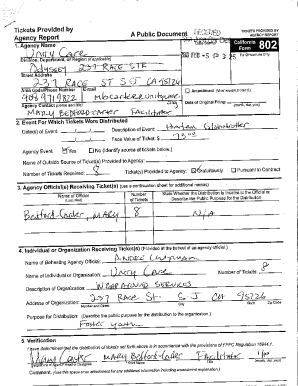 Tickets Provided by
Agency Report
A Public Document
RECEIVED
TICKETS PROVIDED BY
AGENCY REPORT
1. Agency Name
Unity Care
California Form 802
Division, Department, or Region (if applicable)
Odyssey 237 RACE STR
FEB -5 P 3:25
For Official Use Only
Street Address
237 RACE ST SJ CA 95126
Area Code/Phone Number
E-mail
Amendment
Agency Contact
MARY BEDFORD-CARTER Facilitator
Date of Original Filing:
(month, day, year)
2. Event For Which Tickets Were Distributed
Date(s) of Event
Description of Event:
Harlem Globetrotter
Face Value of Ticket: $
Agency Event:
Yes
No (Identify source of tickets below.)
Name of Outside Source of Ticket(s) Provided to Agency:
Number of Tickets Received: 8
Ticket(s) Provided to Agency:
Gratuitously
Pursuant to Contract
3. Agency Official(s) Receiving Ticket(s) (use a continuation sheet for additional names)
Name of Official
(Last, First)
Number
of Tickets
State Whether the Distribution is Income to the Official or
Describe the Public Purpose for the Distribution
Bedford-Carter, MARY
8
N/A
4. Individual or Organization Receiving Ticket(s) (Provided at the behest of an agency official.)
Name of Behesting Agency Official:
ANDRE Chapman
Name of Individual or Organization:
Unity Care
Number of Tickets: 8
Description of Organization:
WRAPAROUND SERVICES
Address of Organization:
237 RACE St. SJ CA 95126
Number and Street
City
State
Zip Code
Purpose for Distribution: (Describe the public purpose for the distribution to the organization.)
Foster youth
5. Verification
I have determined that the distribution of tickets set forth above is in accordance with the provisions of FPPC Regulation 18944.1.
MARY Bedford-Carter
Facilitator
Comment: (Use this space or an attachment for any additional information including amendment explanation)